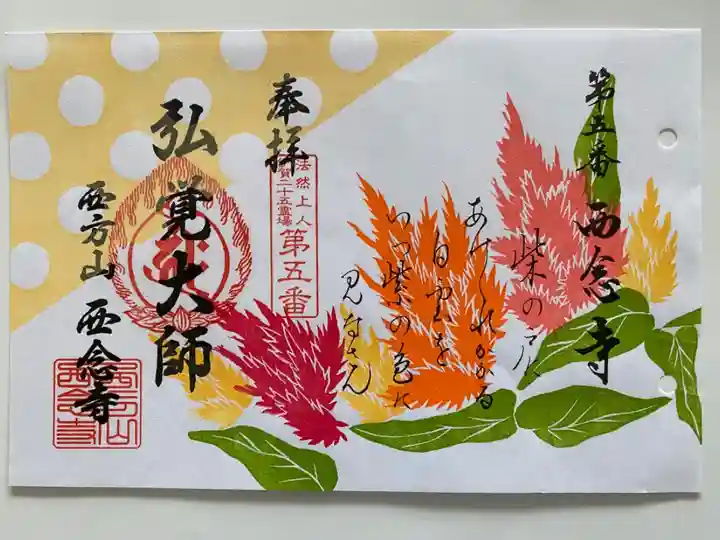 第五番 西念寺
柴の戸に
あけくれかかる
白雲を
いつ紫の色に
見なさん
奉拝
法然上人
滋賀二十五霊場
第五番
弘覚大師
西方山 西念寺